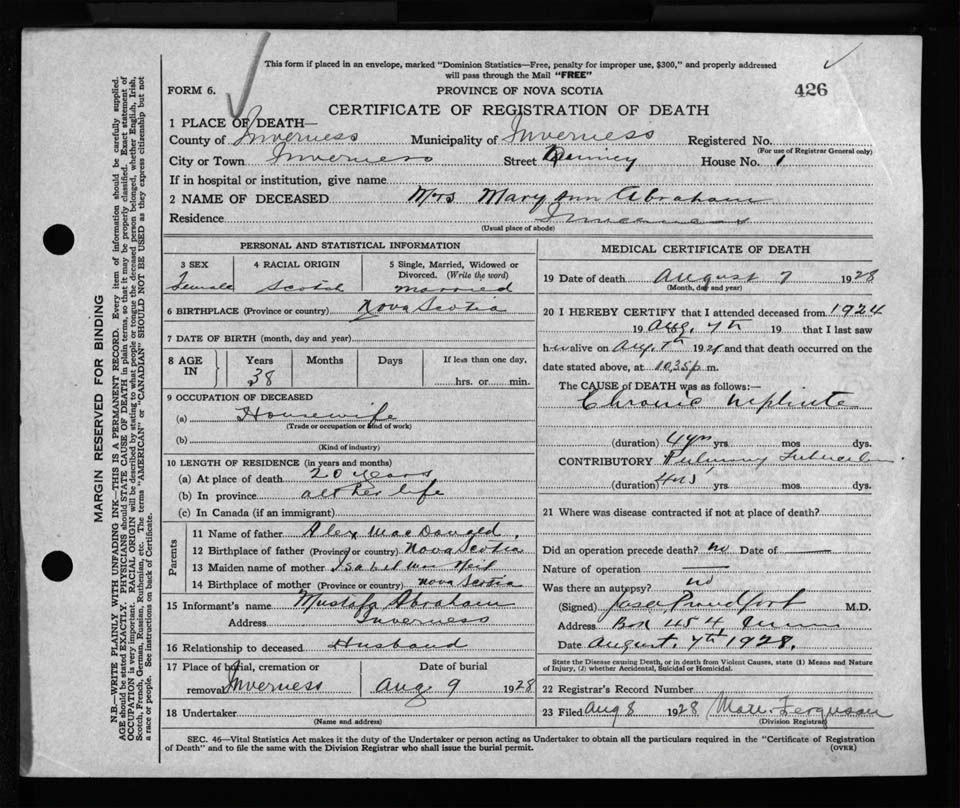 This form if placed in an envelope, marked "Dominion Statistics—Free, penalty for improper use, $300," and properly addressed
will pass through the Mail "FREE"
FORM 6.
PROVINCE OF NOVA SCOTIA
426
CERTIFICATE OF REGISTRATION OF DEATH
1 PLACE OF DEATH—
County of Inverness Municipality of Inverness Registered No.
(For use of Registrar General only)
City or Town Inverness Street House No. 1
If in hospital or institution, give name
2 NAME OF DECEASED Mrs Mary Ann Abraham
Residence Inverness
(Usual place of abode)
PERSONAL AND STATISTICAL INFORMATION
3 SEX 4 RACIAL ORIGIN 5 Single, Married, Widowed or
Divorced. (Write the word)
Female Scotch married
6 BIRTHPLACE (Province or country) Nova Scotia
7 DATE OF BIRTH (month, day and year)
8 AGE IN Years Months Days If less than one day,
38 hrs. or min.
9 OCCUPATION OF DECEASED
(a) Housewife
(Trade or occupation or kind of work)
(b)
(Kind of industry)
10 LENGTH OF RESIDENCE (in years and months)
(a) At place of death 20 years
(b) In province all her life
(c) In Canada (if an immigrant)
Parents
11 Name of father Alex MacDougald
12 Birthplace of father (Province or country) Nova Scotia
13 Maiden name of mother Isabel Mac Neil
14 Birthplace of mother (Province or country) nova Scotia
15 Informant's name Mustafa Abraham
Address Inverness
16 Relationship to deceased Husband
17 Place of burial, cremation or Date of burial
removal Inverness Aug 9 1928
18 Undertaker
(Name and address)
MEDICAL CERTIFICATE OF DEATH
19 Date of death August 7 1928
(Month, day and year)
20 I HEREBY CERTIFY that I attended deceased from 1924
19 Aug. 7th 19 that I last saw
h alive on Aug. 7th 1928 and that death occurred on the
date stated above, at 10.35 p m.
The CAUSE OF DEATH was as follows:—
Chronic
(duration) 4 yrs yrs mos dys.
CONTRIBUTORY
(duration) yrs mos dys.
21 Where was disease contracted if not at place of death?
Did an operation precede death? no Date of —
Nature of operation —
Was there an autopsy? no
(Signed) Proudfoot M.D.
Address Box 454,
Date August 7th 1928.
State the Disease causing Death, or in death from Violent Causes, state (1) Means and Nature
of Injury, (2) whether Accidental, Suicidal or Homicidal.
22 Registrar's Record Number
23 Filed Aug 8 1928 Ferguson
(Division Registrar)
SEC. 46—Vital Statistics Act makes it the duty of the Undertaker or person acting as Undertaker to obtain all the particulars required in the "Certificate of Registration
of Death" and to file the same with the Division Registrar who shall issue the burial permit.
(OVER)
MARGIN RESERVED FOR BINDING
N.B.—WRITE PLAINLY WITH UNFADING INK—THIS IS A PERMANENT RECORD. Every item of information should be carefully supplied.
AGE should be stated EXACTLY. PHYSICIANS should STATE CAUSE OF DEATH in plain terms, so that it may be properly classified. Exact statement of
OCCUPATION is very important. RACIAL ORIGIN will be described by stating to what people or tongue the deceased person belonged, whether English, Irish,
Scotch, French, German, Russian, Ruthenian, etc. The terms "AMERICAN" or "CANADIAN" SHOULD NOT BE USED as they express citizenship but not
a race or people. See instructions on back of Certificate.